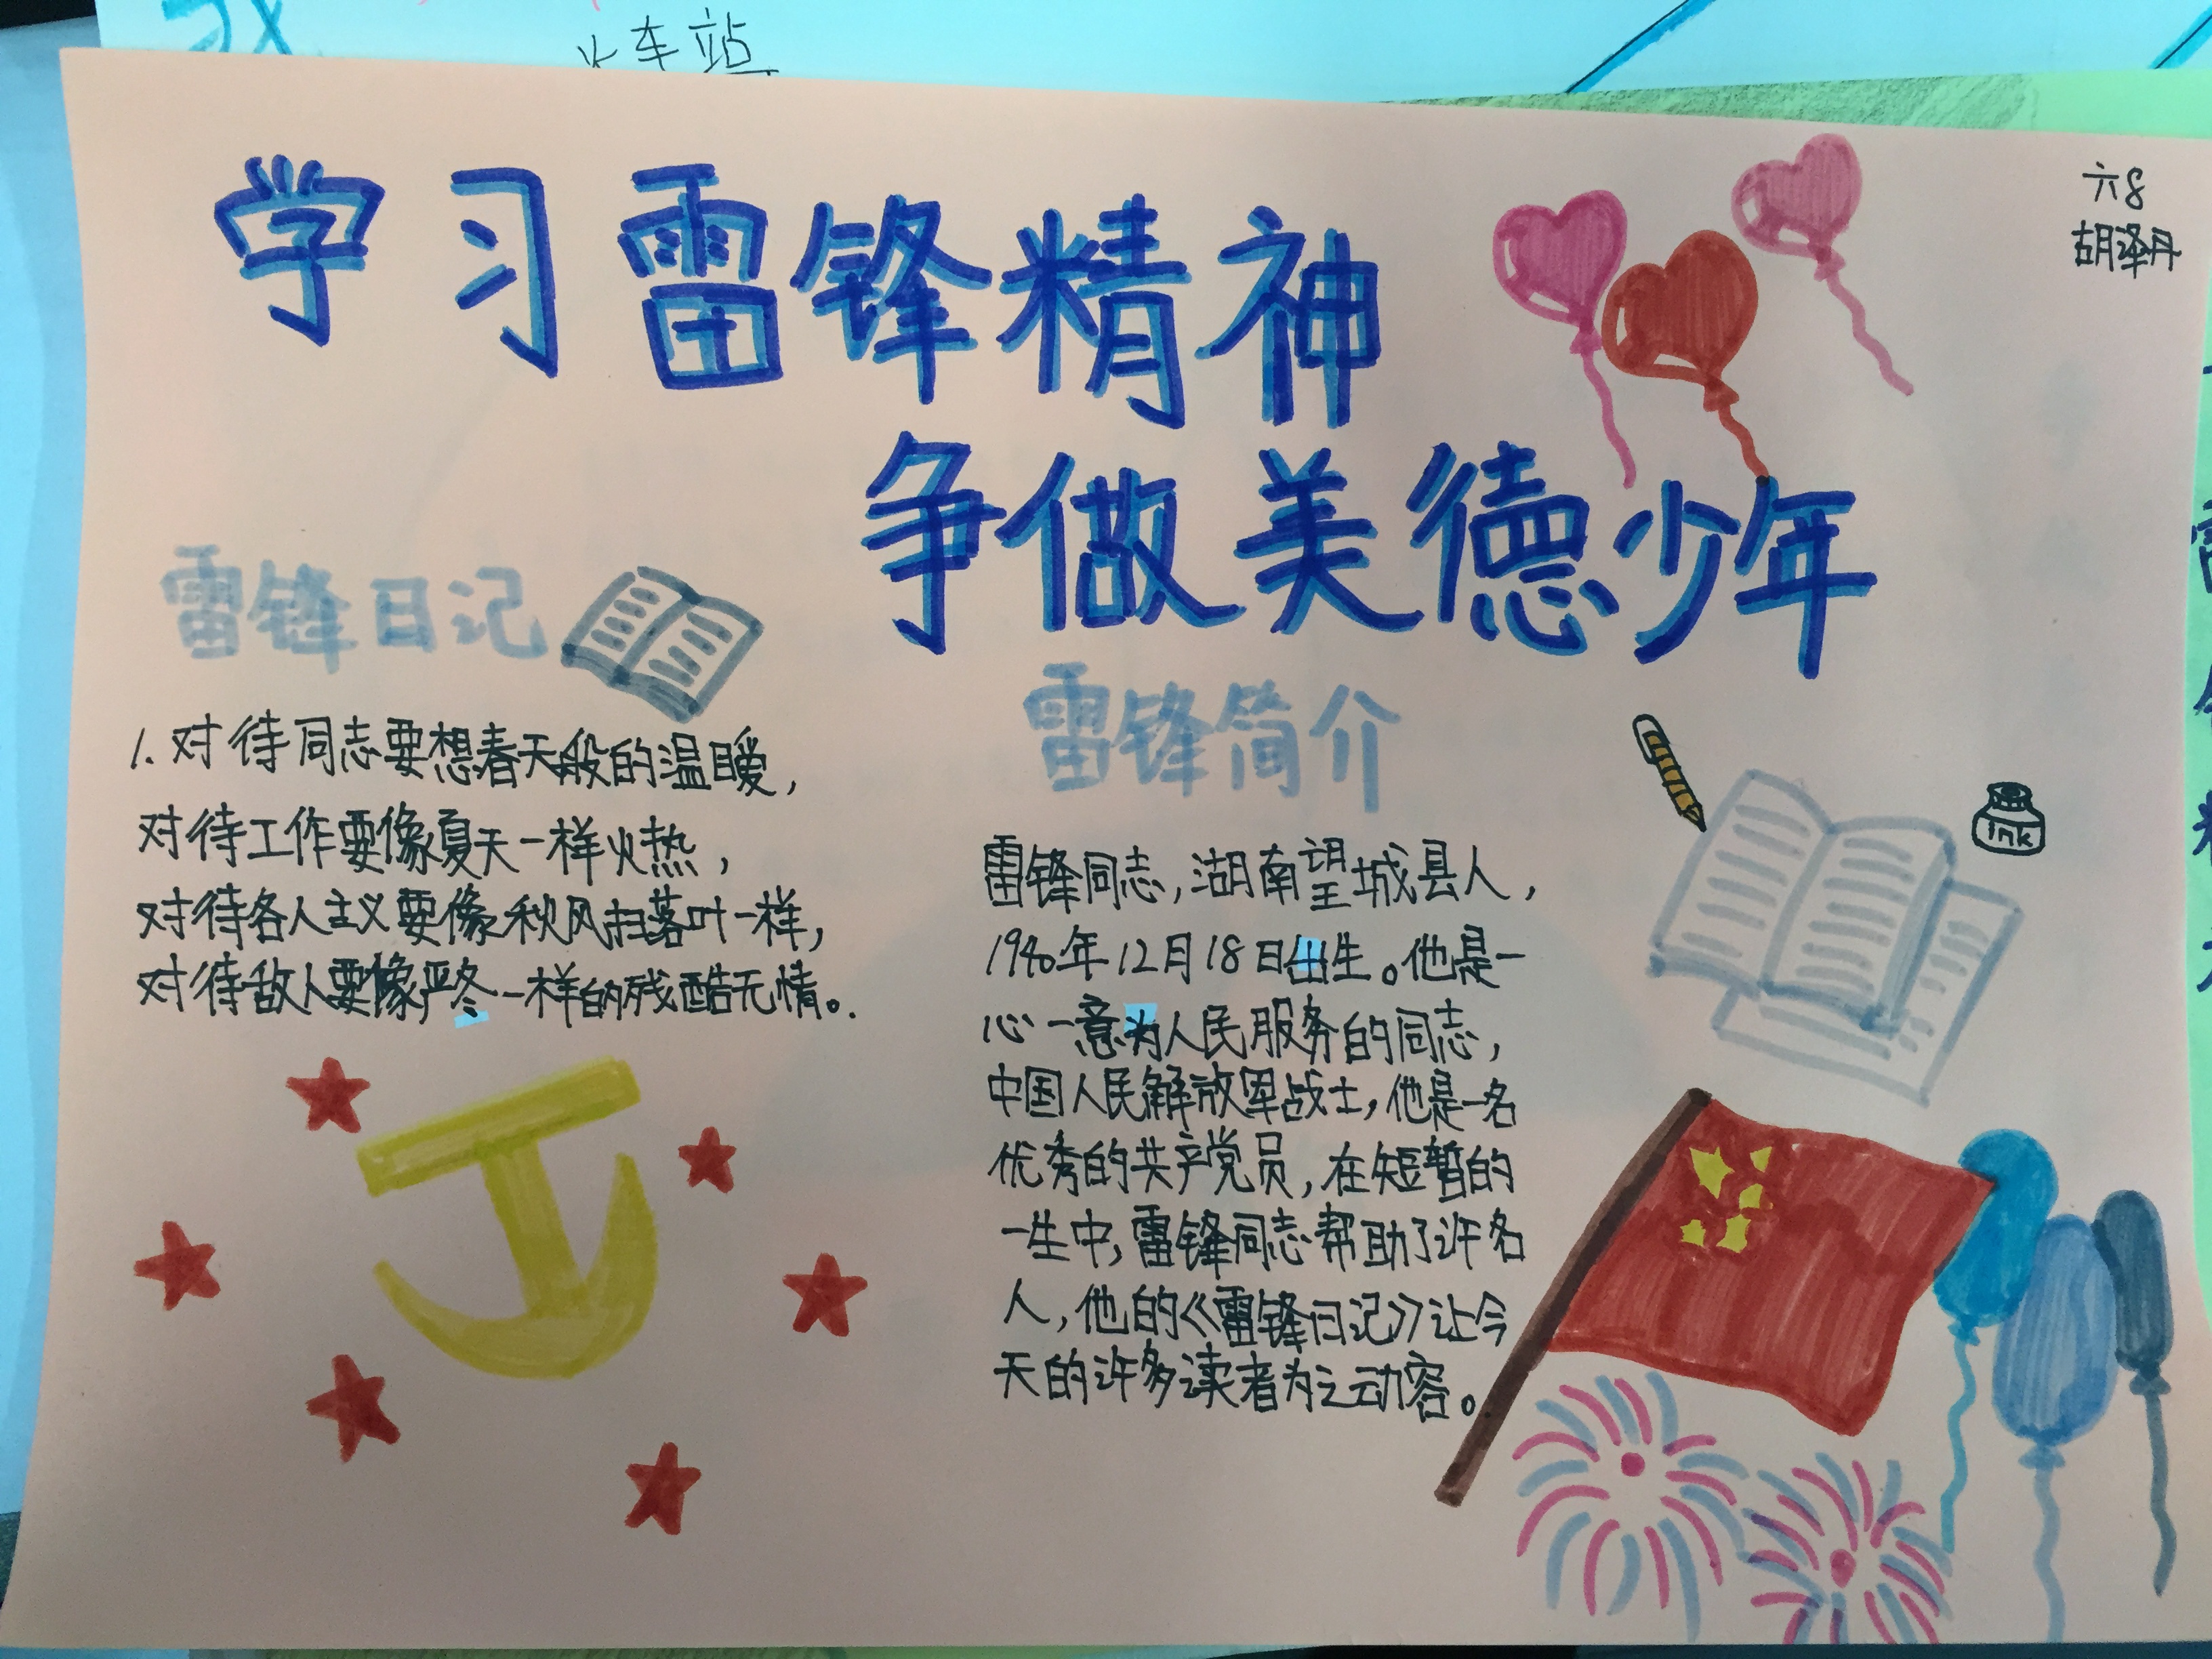 火车站
六8
胡泽丹
学习雷锋精神
争做美德少年
雷锋日记
1.对待同志要想春天般的温暖，
对待工作要像夏天一样火热，
对待各人主义要像秋风扫落叶一样，
对待敌人要像严冬一样的残酷无情。
雷锋简介
雷锋同志，湖南望城县人，
1940年12月18日出生。他是一
心一意为人民服务的同志，
中国人民解放军战士，他是一名
优秀的共产党员，在短暂的
一生中，雷锋同志帮助了许多
人，他的《雷锋日记》让今
天的许多读者为之动容。
ink